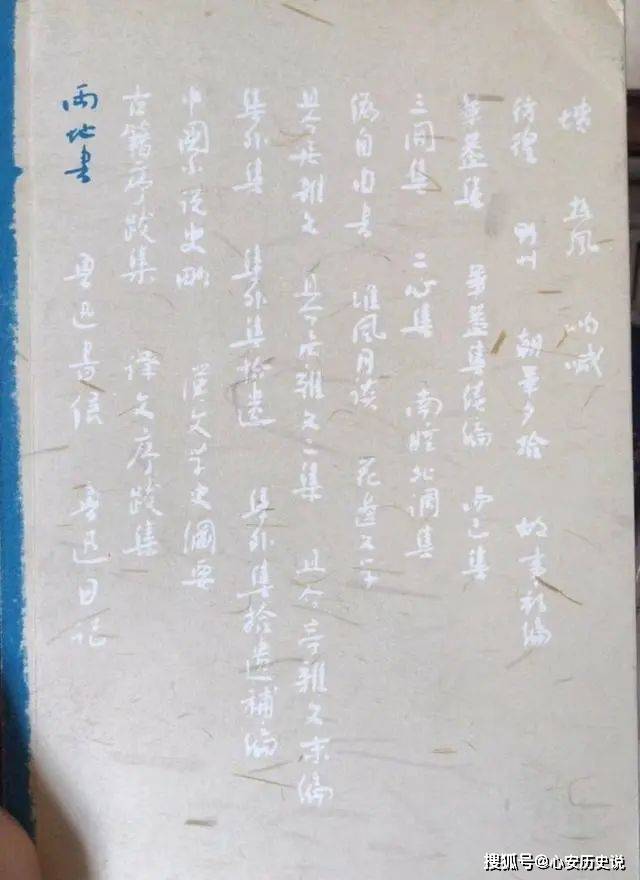 坟 热风 呐喊
彷徨 野草 朝华夕拾 故事新编
华盖集 华盖集续编 而已集
三闲集 二心集 南腔北调集
伪自由书 准风月谈 花边文学
且介亭杂文 且介亭杂文二集 且介亭杂文末编
集外集 集外集拾遗 集外集拾遗补编
中国小说史略 汉文学史纲要
古籍序跋集 译文序跋集
两地书 鲁迅书信 鲁迅日记
搜狐号@心安历史说